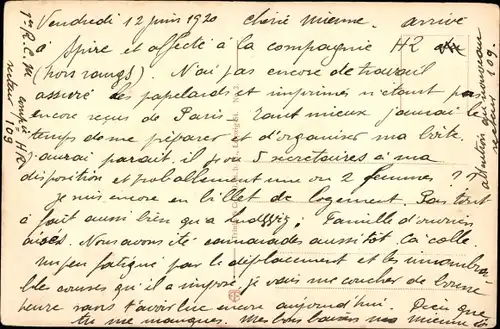 Vendredi 12 juin 1920 chérie mienne. arrivé
à Spire et affecté à la compagnie HR
(hors rangs). N'ai pas encore de travail
assuré des papelards et imprimés n'étant pas
encore reçus de Paris. Tant mieux j'aurai le
temps de me préparer et d'organiser ma boîte.
J'aurai paraît-il 5 secrétaires à ma
disposition et probablement une ou 2 femmes !?
Je suis encore en billet de logement. Pas tout
à fait aussi bien qu'à : Famille d'ouvriers
aisés. Nous avons été camarades aussitôt. Ça colle.
un peu fatigué par le déplacement et les innombra-
ble courses qu'il a imposé, je vais me coucher de bonne
heure sans t'avoir lue encore aujourd'hui.
tu me manques. Mes bons baisers ma mienne
1er R.C.M
compie HR
secteur 109
attention au nouveau
secteur 109.